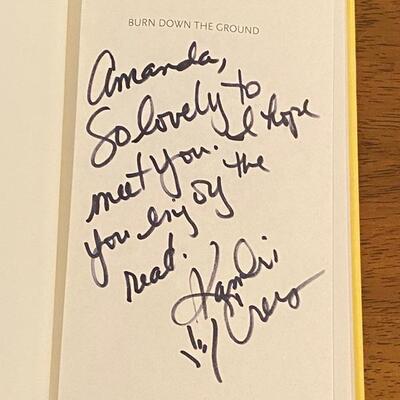 BURN DOWN THE GROUND
Amanda,
So lovely to
meet you. I hope
you enjoy the
read.
Kambri
Crews